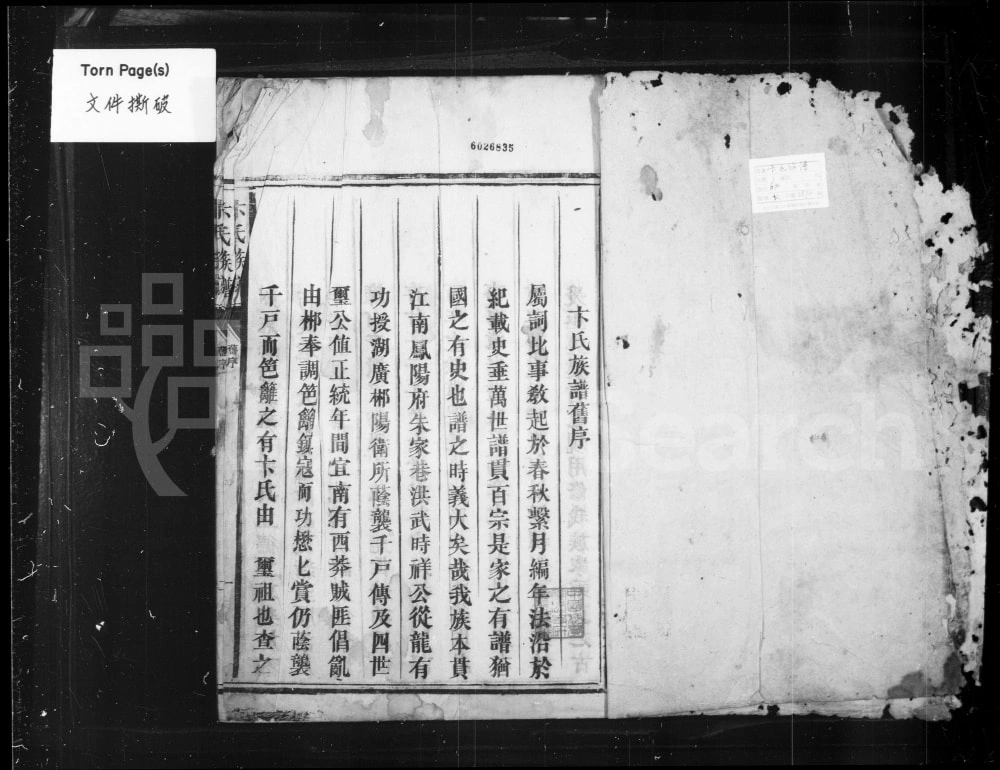 Torn Page(s)
文件撕破
6026835
卞氏族譜舊序
屬詞比事教起於春秋繫月編年法沿於
紀載史垂萬世譜貫百宗是家之有譜猶
國之有史也譜之時義大矣哉我族本貫
江南鳳陽府朱家巷洪武時祥公從龍有
功授湖廣郴陽衛所蔭襲千戸傳及四世
璽公值正統年間宜南有西莽賊匪倡亂
由郴奉調笆籬鎮宼而功懋匕賞仍蔭襲
千戸而笆籬之有卞氏由 璽祖也查之
卞氏族譜
舊序